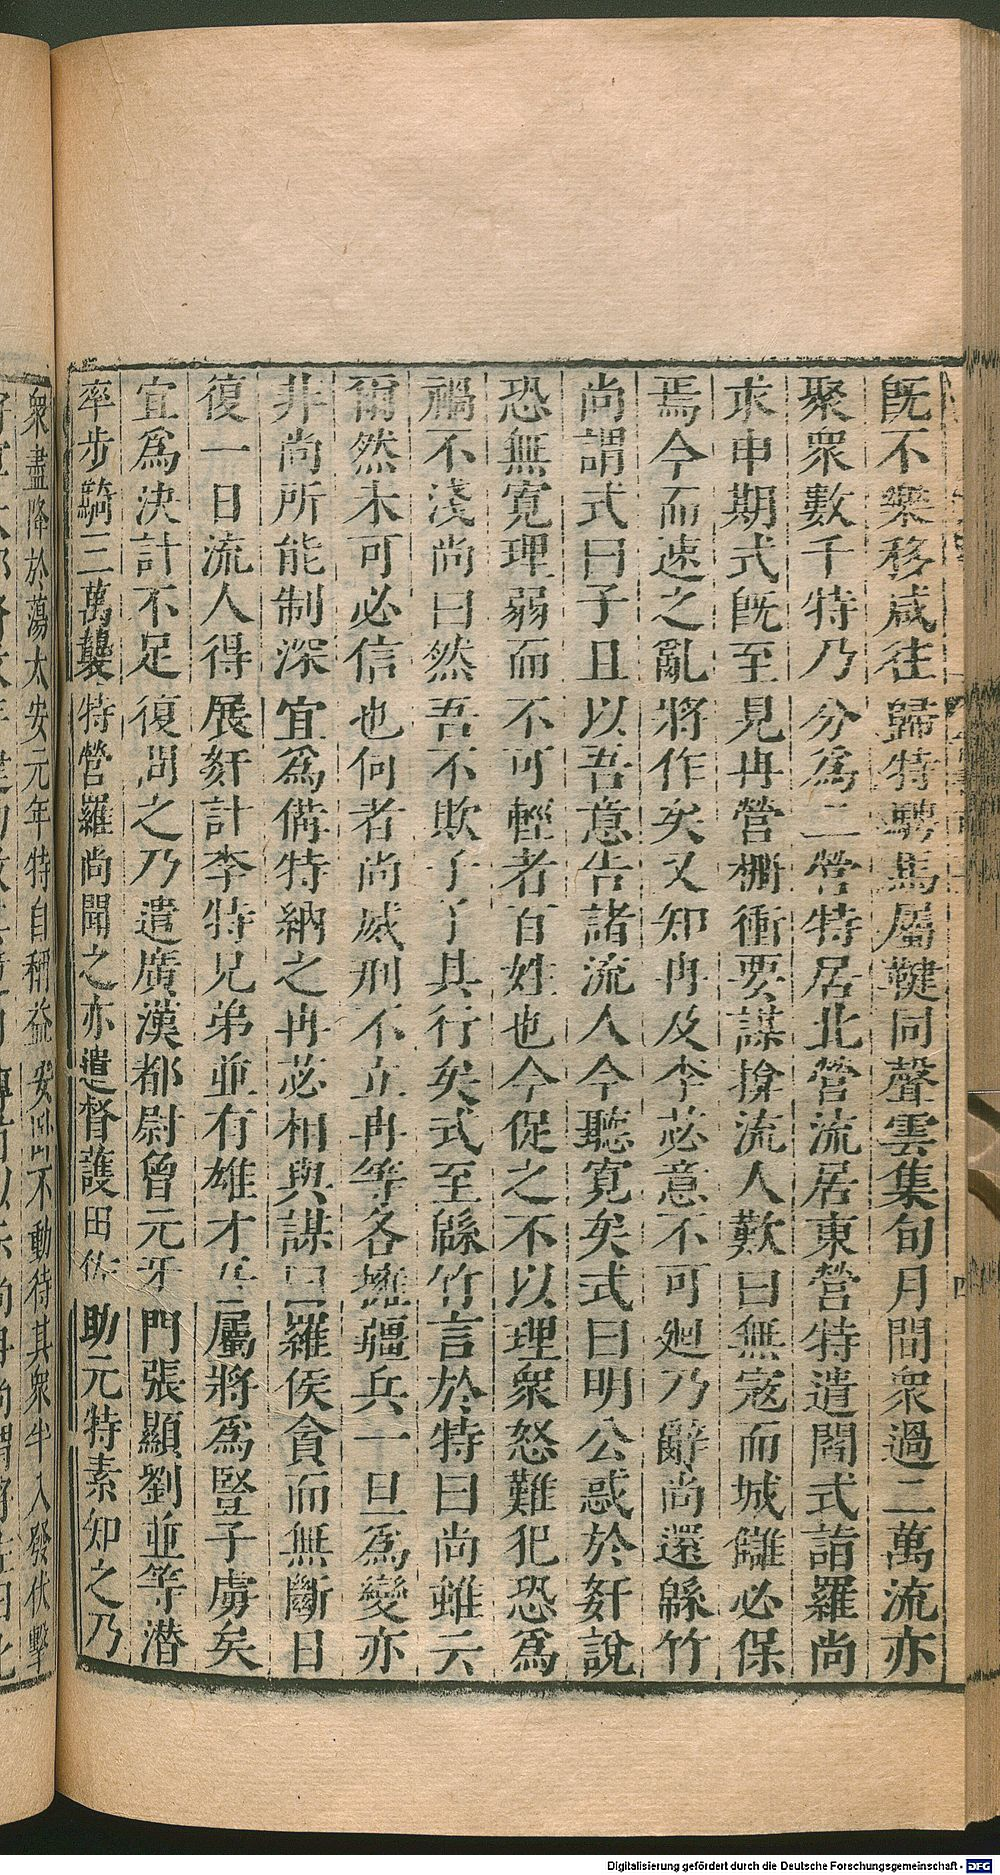 既不樂移咸往歸特騁馬屬鞬同聲雲集旬月間衆過二萬流亦
聚衆數千特乃分爲二營特居北營流居東營特遣閻式詣羅尚
求申期式既至見冉營柵衝要謀揜流人歎曰無寇而城讎必保
焉今而速之亂將作矣又知冉及李苾意不可廻乃辭尚還緜竹
尚謂式曰子且以吾意告諸流人今聽寬矣式曰明公惑於姧說
恐無寬理弱而不可輕者百姓也今促之不以理衆怒難犯恐爲
禍不淺尚曰然吾不欺子子其行矣式至緜竹言於特曰尚雖云
爾然未可必信也何者尚威刑不立冉等各擁疆兵一旦爲變亦
非尚所能制深宜爲備特納之冉苾相與謀曰羅侯貪而無斷日
復一日流人得展姧計李特兄弟並有雄才吾屬將爲豎子虜矣
宜爲決計不足復問之乃遣廣漢都尉曾元牙門張顯劉並等潜
率步騎三萬襲特營羅尚聞之亦遣督護田佐助元特素知之乃
衆盡降於蕩太安元年特自稱益 不動待其衆半入發伏擊
Digitalisierung gefördert durch die Deutsche Forschungsgemeinschaft - DFG